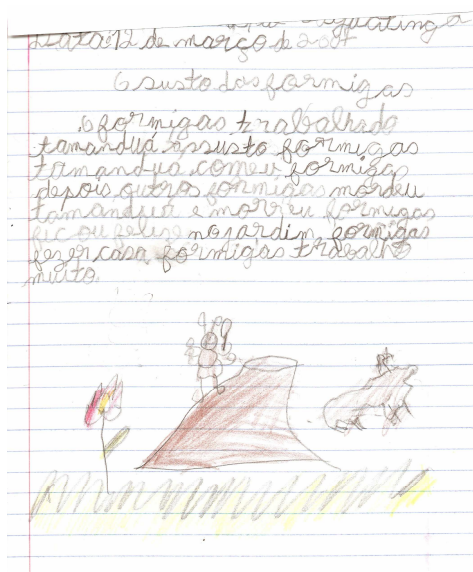 Data: 12 de março de 2007
O susto das formigas
.6 formigas trabalhado
tamanduá assusto formigas
tamanduá comeu formigas
depois outros formigas mordeu
tamanduá e morreu formigas
ficou felize no jardim formigas
fezer casa formigas trabalho
muito.